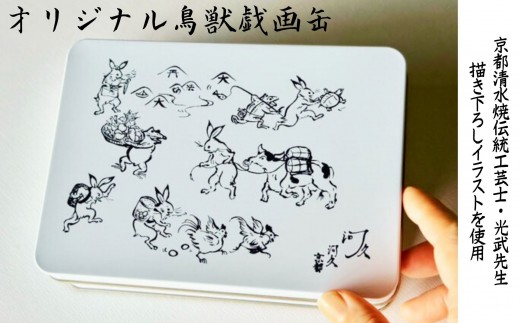 オリジナル鳥獣戯画缶
京都清水焼伝統工芸士・光武先生
描き下ろしイラストを使用
河久
河久
京都